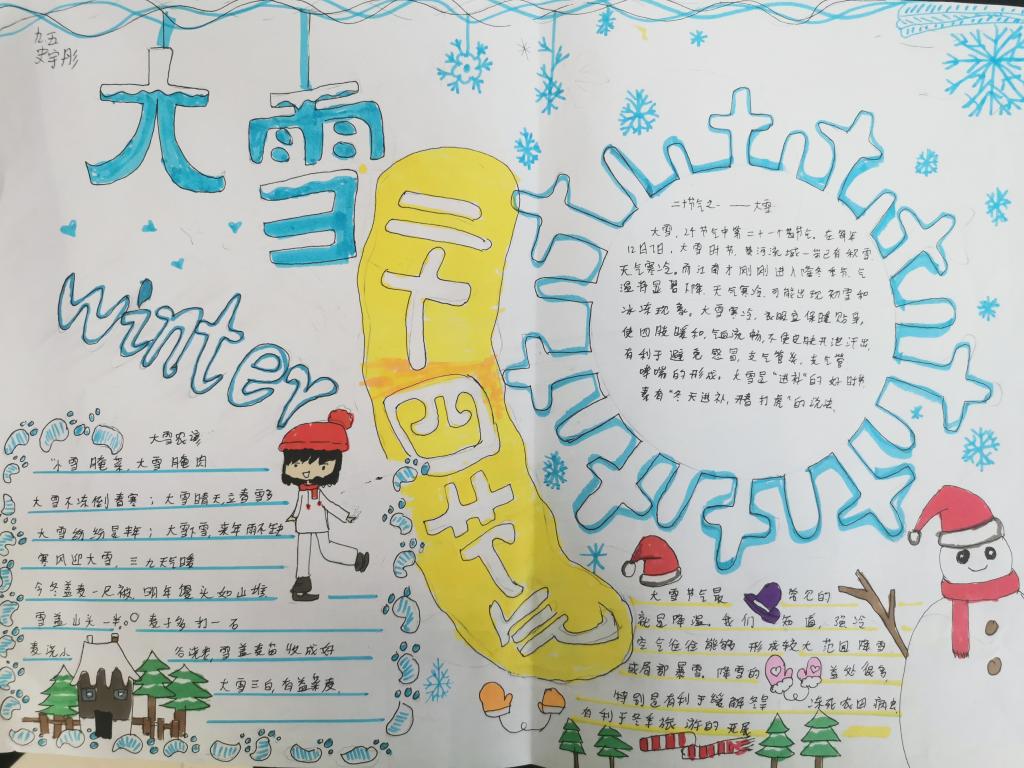 九五
史宇彤
大雪
二十四节气
winter
二十节气之一 ——大雪
大雪，24节气中第二十一个节气。在每年
12月7日，大雪时节，黄河流域一带已有积雪
天气寒冷。而江南才刚刚进入隆冬季节，气
温将显著下降，天气寒冷，可能出现初雪和
冰冻现象。大雪寒冷，衣服应保暖贴身，
使四肢暖和，气血流畅，不使皮肤开泄汗出，
有利于避免感冒，支气管炎，支气管
哮喘的形成。大雪是“进补”的好时机
素有“冬天进补，开春打虎”的说法
大雪农谚
小雪腌菜，大雪腌肉
大雪不冻倒春寒；大雪晴天立春雪多
大雪纷纷是丰年；大雪下雪来年雨不缺
寒风迎大雪，三九天气暖
今冬盖麦一尺被 明年馒头如山堆
雪盖山头一半 麦子多打一石
麦浇小 谷浇老，雪盖麦苗收成好
大雪三白，有益菜麦
大雪节气最 常见的
就是降温，我们 知道，强冷
空气往往能够 形成较大范围降雪
或局部暴雪，降雪的 益处很多
特别是有利于缓解冬旱 冻死农田病虫
有利于冬季旅游的开展